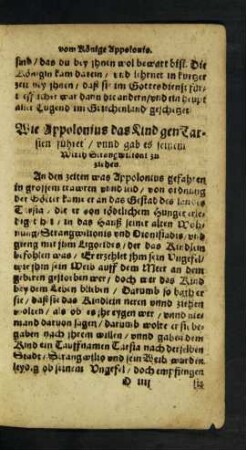 vom Könige Appolonio.
sind / das du bey jhnen wol bewart bist. Die
Königin kam darein / vnd lehrnet in kurtzer
zeit bey jhnen / daß sie im Gottesdienst für-
aller Tugend im Griechenland geschetzet.
Wie Appolonius das Kind gen Tar-
sien führet / vnnd gab es seinem
Wirth Strangwilioni zu
ziehen.
An den zeiten was Appolonius gefahren
in grossem trawren vnnd leid / von ordnung
der Götter kame er an das Gestad des lands
Tarsia / die er von tödtlichem Hunger erle-
diget
nung / Strangwilionis vnd Dionisiadis / vnd
gieng mit
befohlen was / Er erzehlet jhm sein Vngefel /
wie jhm sein Weib auff dem Meer an dem
geberen gestorben wer / doch wer das Kind
bey dem Leben blieben / Darumb so bath er
sie / daß sie das Kindlein neren vnnd ziehen
wolten / als ob es jhr eygen wer / vnnd nie-
mand daruon sagen / darumb wolte er sie be-
gaben nach jhrem willen / vnnd gaben dem
Kind ein Tauffnamen Tarsia nach derselben
Stadt / Strangwilio vnd sein Weib wurden
leydig ob seinem Vngefel / doch empfiengen